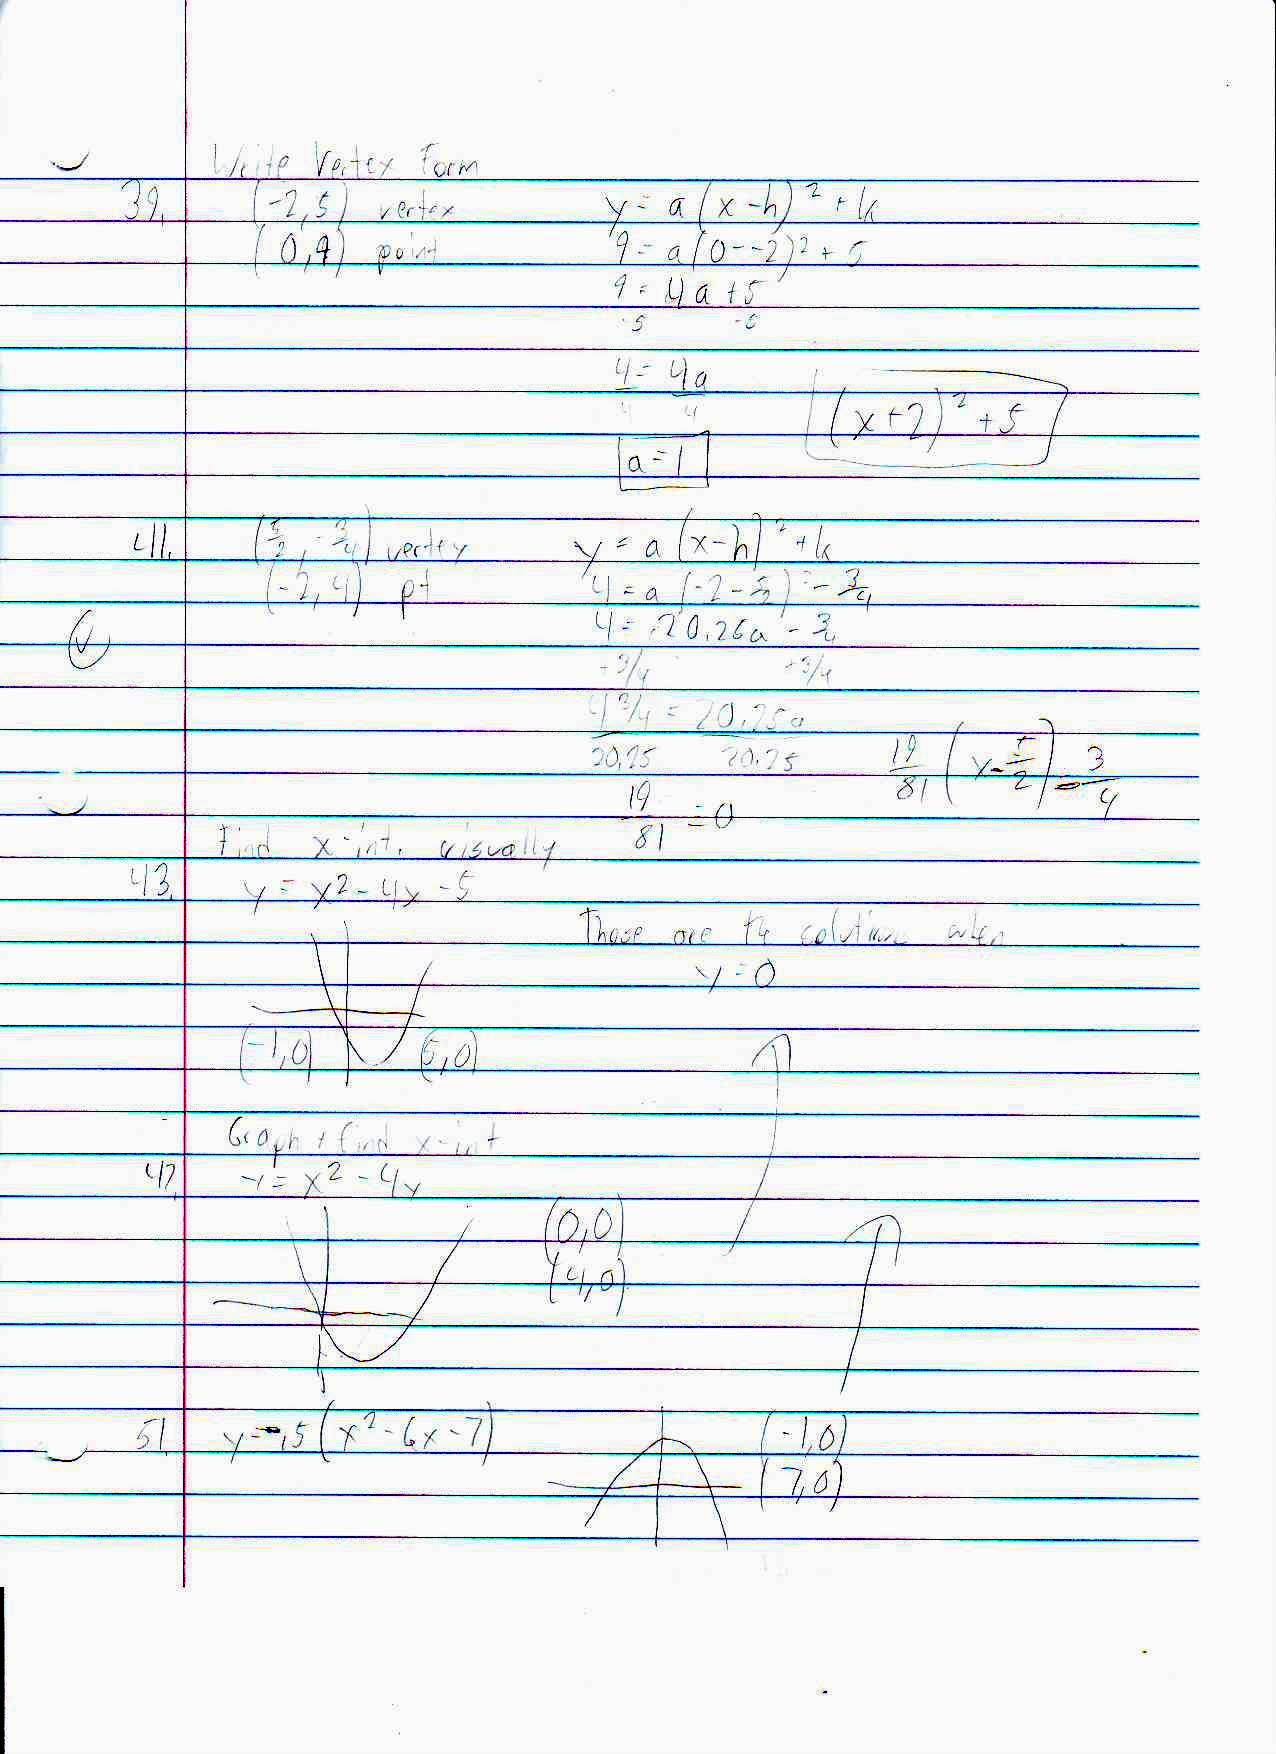 Write Vertex Form
39. (-2,5) vertex y = a(x-h)² + k
(0,9) point 9 = a(0--2)² + 5
9 = 4a + 5
-5 -5
4 = 4a
4 4
(x+2)² + 5
a = 1
41. (5/2, -3/4) vertex y = a(x-h)² + k
(-2,4) pt 4 = a(-2-5/2)² - 3/4
4 = 20.25a - 3/4
+3/4 +3/4
4 3/4 = 20.25a
20.25 20.25
19/81 (x-5/2) - 3/4
19/81 = a
Find x-int. visually
43. y = x² - 4x - 5
Those are the solutions when
y = 0
(-1,0) (5,0)
Graph + find x-int
47. y = x² - 4x
(0,0)
(4,0)
51. y = -.5(x² - 6x - 7) (-1,0)
(7,0)